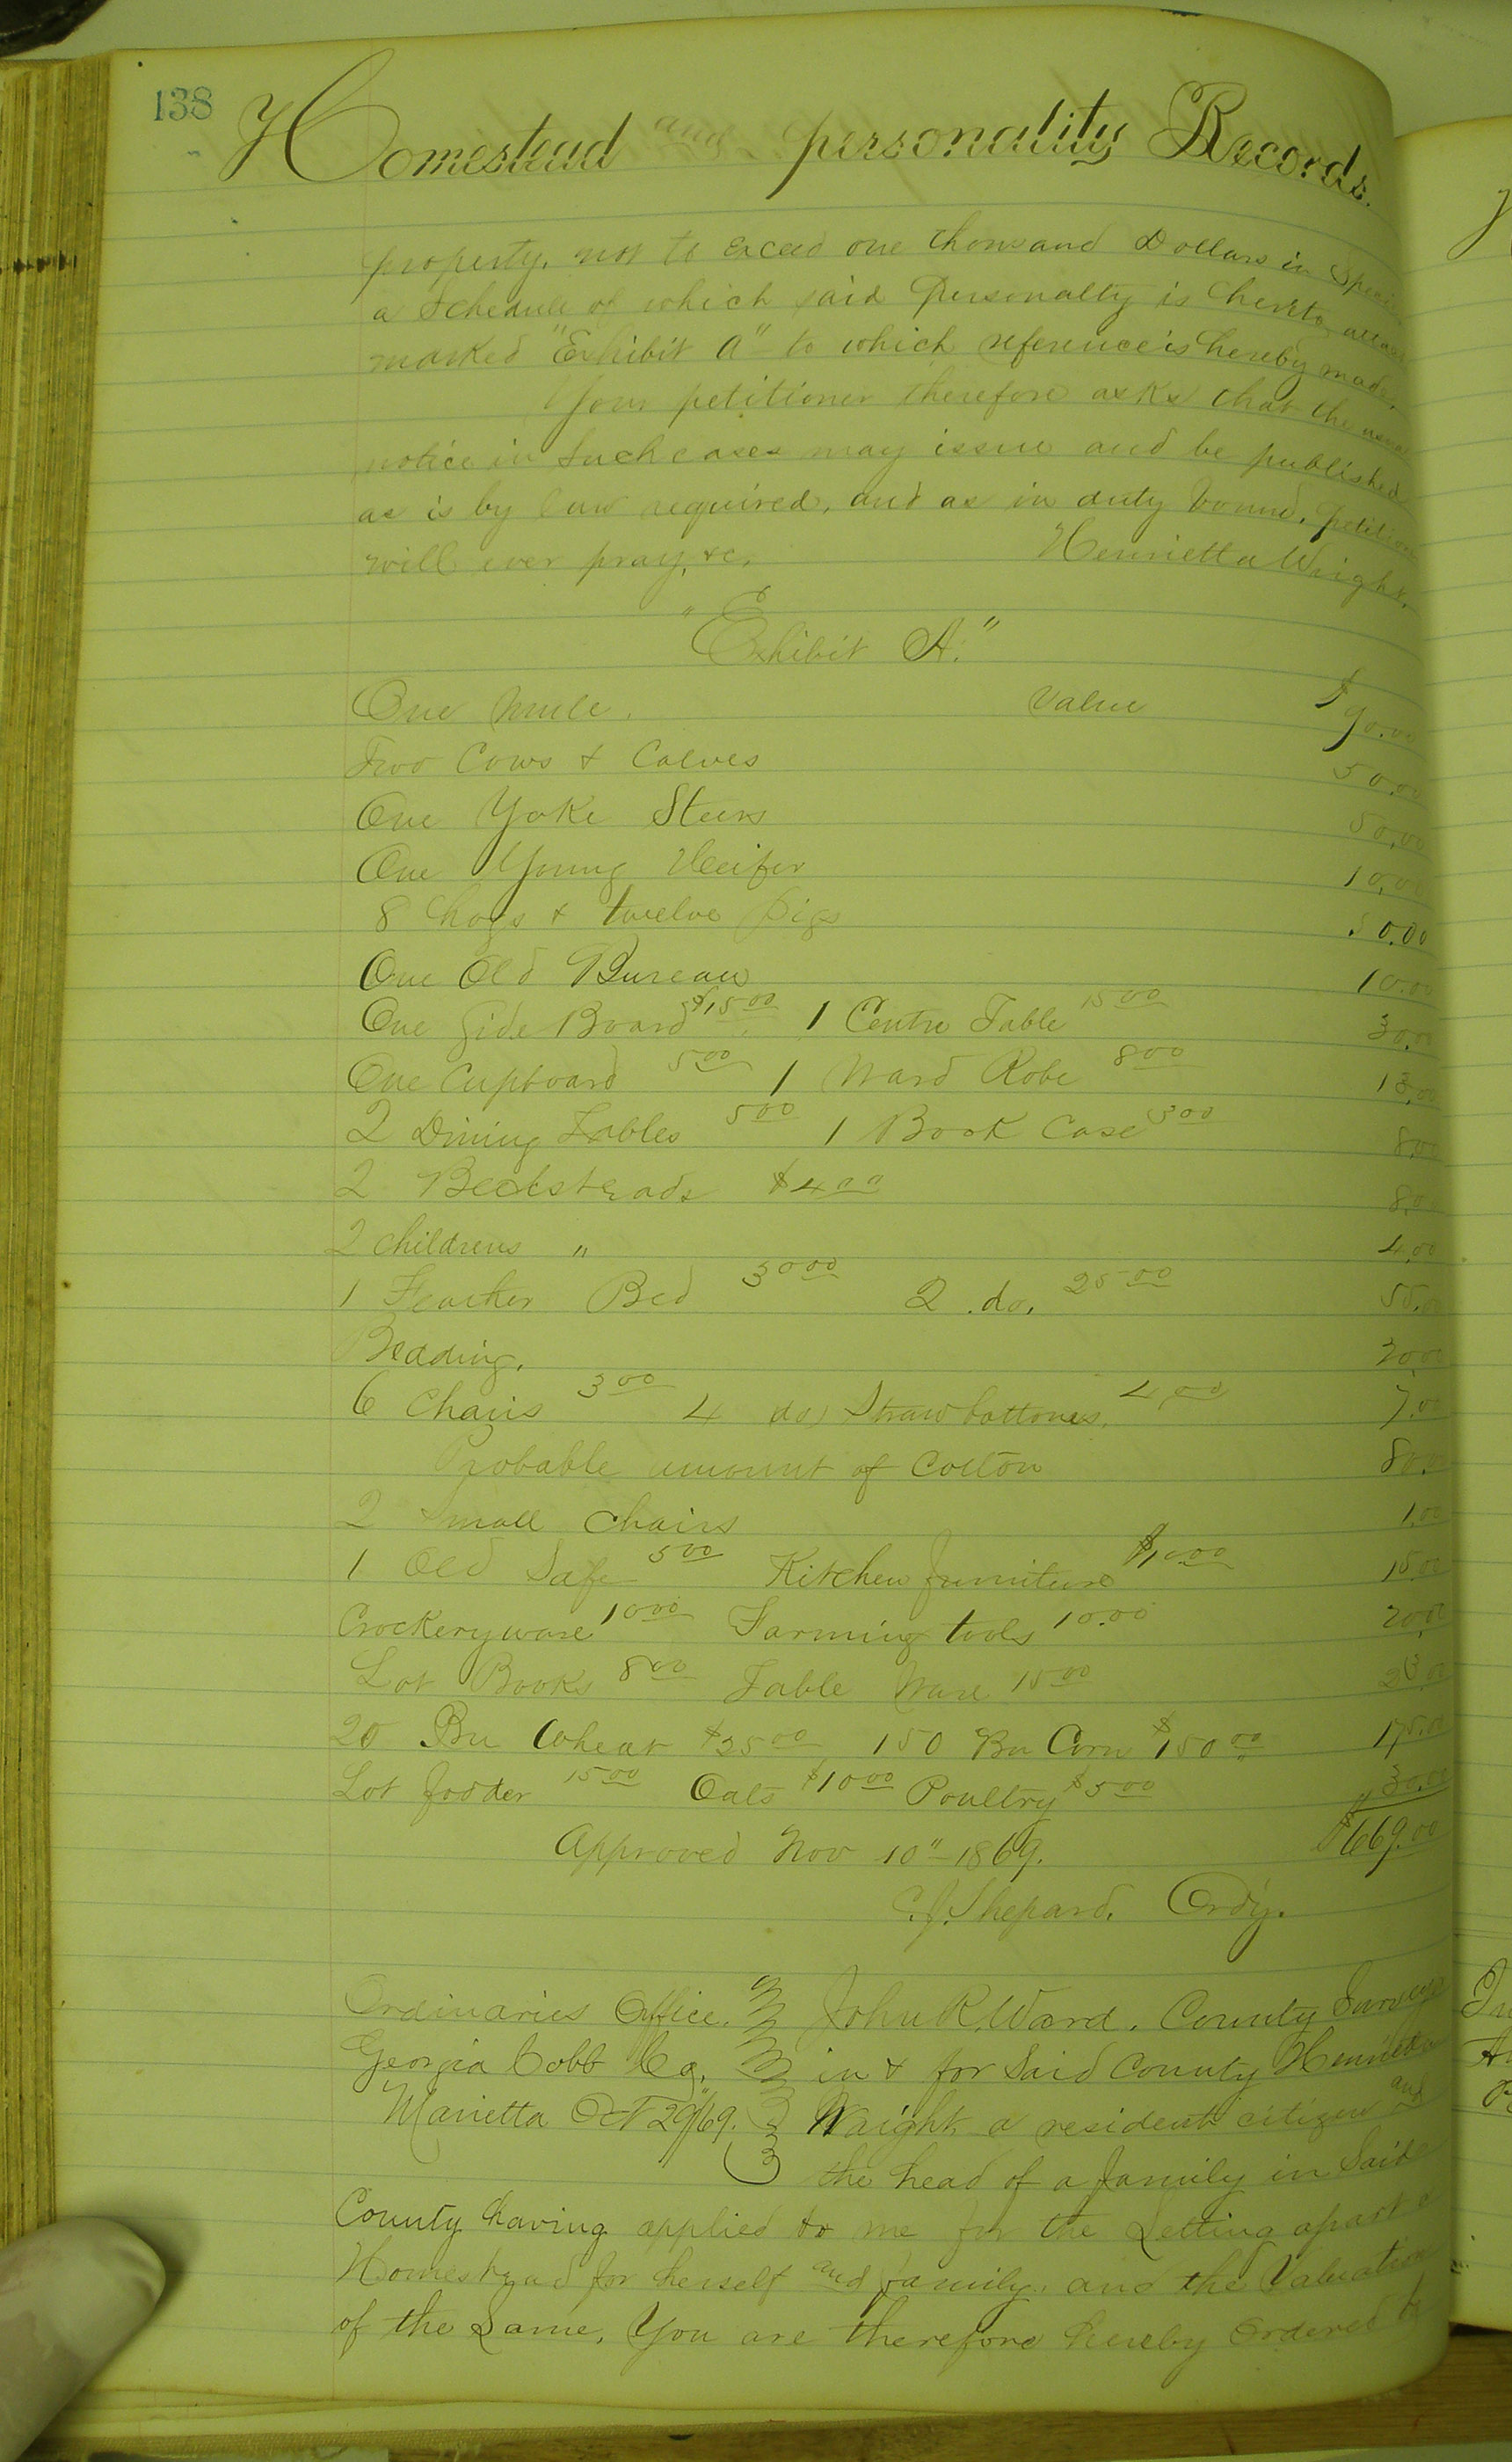 138
Homestead and personality Records.
property, not to Exceed one thousand Dollars in
a Schedule of which said Personalty is hereto
marked "Exhibit A" to which reference is hereby made.
Your petitioner therefore asks that the usual
notice in Such cases may issue and be published
as is by law required, and as in duty bound, petition
will ever pray, &c. Henrietta Wright.
"Exhibit A."
One Mule. Value $90.00
Two Cows & Calves 50.00
One Yoke Steers 50.00
One Young Heifer 10.00
8 hogs & twelve pigs 50.00
One Old Bureau 10.00
One Side Board $15.00 1 Centre Table 15.00 30.00
One Cupboard 5.00 1 Ward Robe 8.00 13.00
2 Dining Tables 5.00 1 Book Case 3.00 8.00
2 Bedsteads $4.00 8.00
2 childrens " 4.00
1 Feather Bed 30.00 2 do. 25.00 55.00
Beading. 20.00
6 Chairs 3.00 4 do) Straw bottomes. 4.00 7.00
Probable amount of Cotton 80.00
2 Small Chairs 1.00
1 Old Safe 5.00 Kitchen furniture $10.00 15.00
Crockeryware 10.00 Farming tools 10.00 20.00
Lot Books 8.00 Table Ware 15.00 23.00
20 Bu Wheat $25.00 150 Bu Corn $150.00 175.00
Lot fodder 15.00 Oats $10.00 Poultry $5.00 30.00
Approved Nov 10" 1869. $669.00
C.J. Shepard. Ordy.
Ordinaries Office. John R. Ward. County
Georgia Cobb Co. in & for Said County Henrietta
Marietta Oct 29"/69. Waight a resident citizen and
the head of a family in Said
County having applied to me for the Setting apart a
Homestead for herself and family, and the Valuation
of the Same, You are therefore hereby Ordered